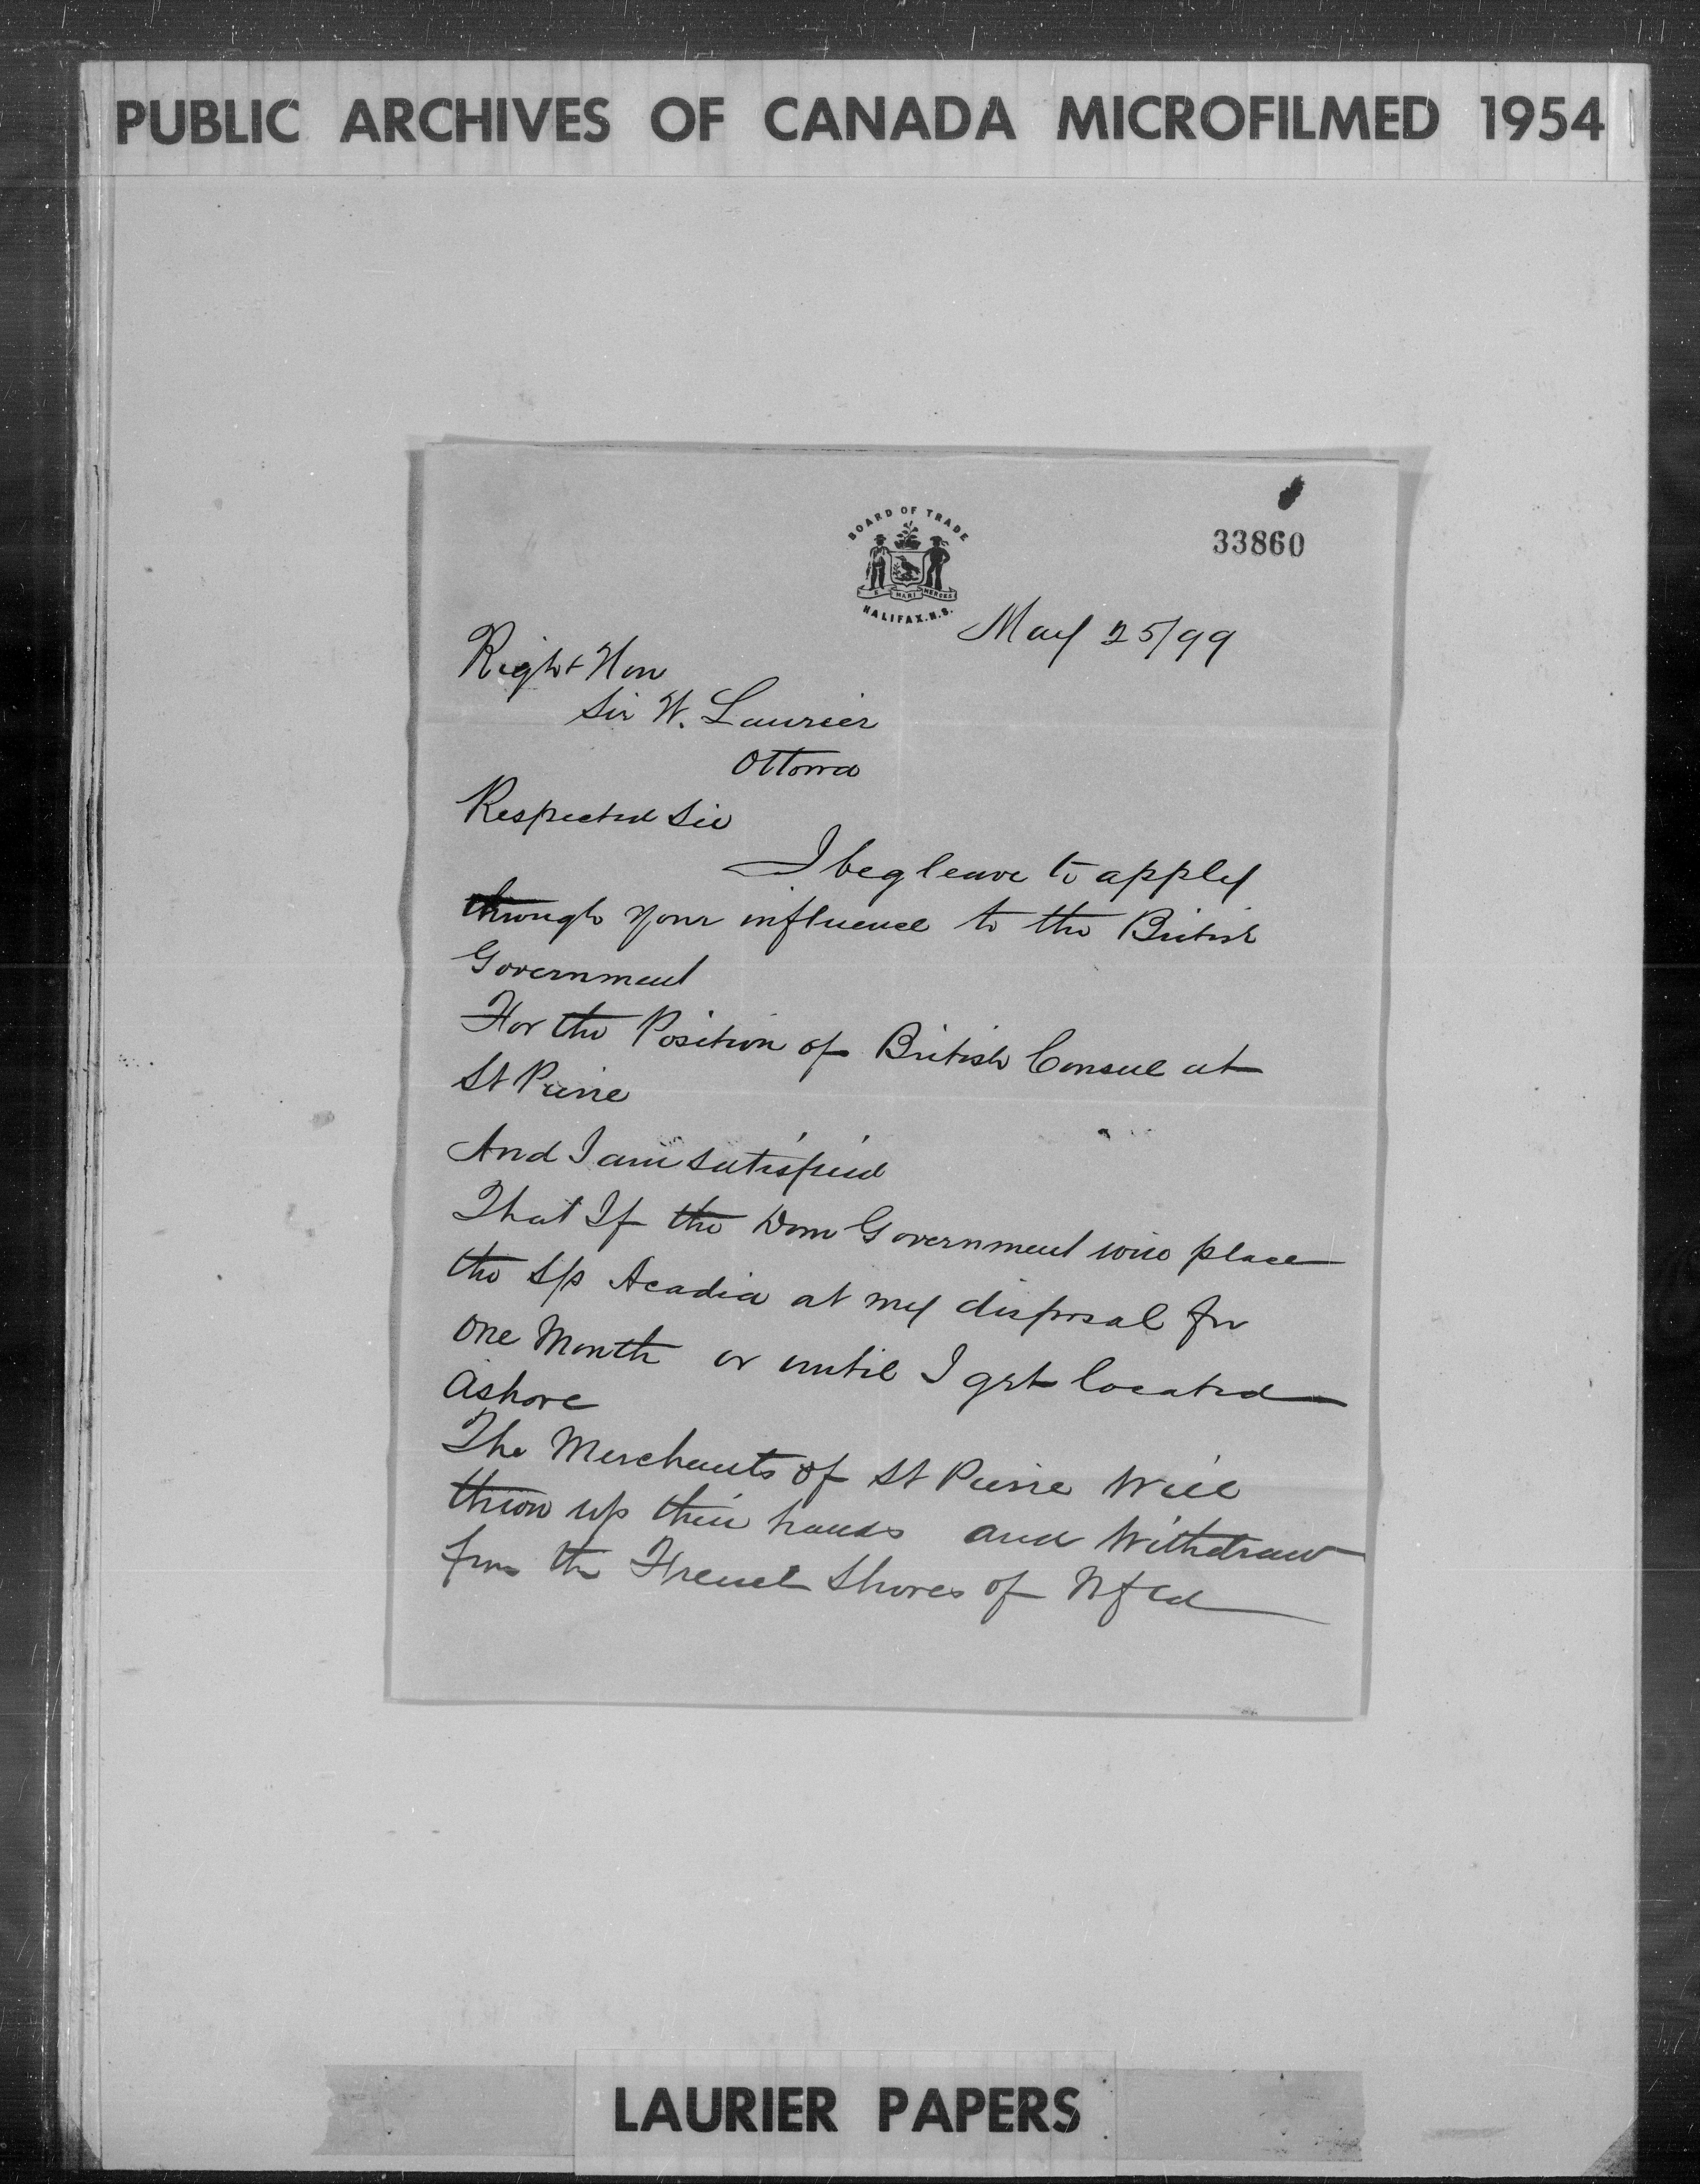 PUBLIC ARCHIVES OF CANADA MICROFILMED 1954
BOARD OF TRADE
E MARI MERCES
HALIFAX. N.S.
33860
May 25/99
Right Hon
Sir W. Laurier
Ottowa
Respected Sir
I beg leave to apply
through your influence to the British
Government
For the Position of British Consul at
St Pierre
And I am satisfied
That If the Dom Government will place
the S/s Acadia at my disposal for
One Month or until I get located
Ashore
The Merchants of St Pierre Will
throw up their hands and Withdraw
from the French Shores of Nfld
LAURIER PAPERS